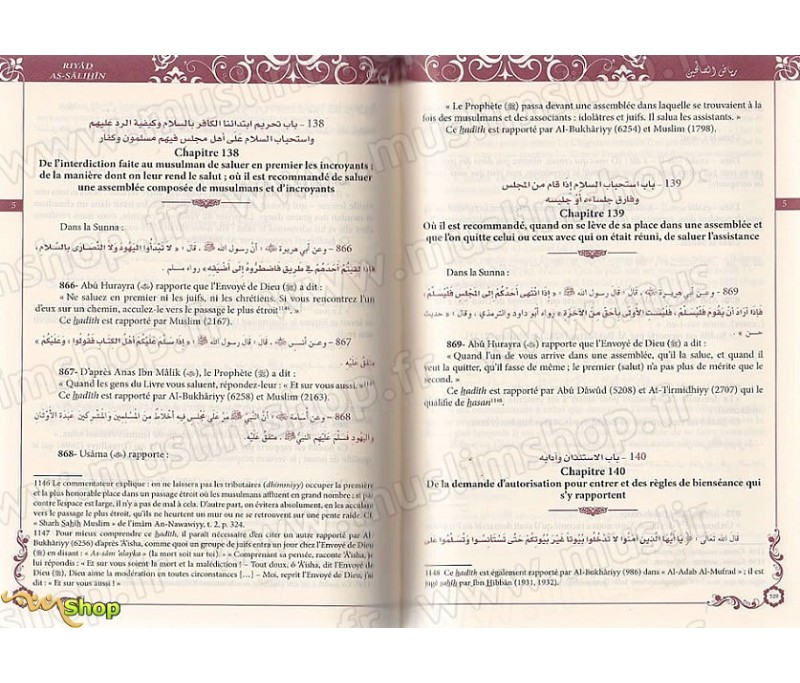 RIYÂḌ
AS-SÂLIHÎN
138 - باب تحريم ابتدائنا الكافر بالسلام وكيفية الرد عليهم
واستحباب السلام على أهل مجلس فيهم مسلمون وكفار
Chapitre 138
De l'interdiction faite au musulman de saluer en premier les incroyants ;
de la manière dont on leur rend le salut ; où il est recommandé de saluer
une assemblée composée de musulmans et d'incroyants
5
Dans la Sunna :
866 - وعن أبي هريرة ﷺ ، أنَّ رسول الله ﷺ ، قال : « لا تَبْدَأُوا اليَهُودَ وَلَا النَّصَارَى بِالسَّلامِ،
فَإِذَا لَقِيتُمْ أَحَدَهُمْ في طَرِيق فَاضْطَرُّوهُ إِلَى أَضْيَقِهِ » رواه مسلم .
866- Abû Hurayra (ﷺ) rapporte que l'Envoyé de Dieu (ﷺ) a dit :
« Ne saluez en premier ni les juifs, ni les chrétiens. Si vous rencontrez l'un
d'eux sur un chemin, acculez-le vers le passage le plus étroit1146. »
Ce hadith est rapporté par Muslim (2167).
867 - وعن أنس ﷺ ، قال : قال رسول الله ﷺ : « إِذَا سَلَّمَ عَلَيْكُمْ أَهْلُ الكِتَابِ فَقُولُوا : وَعَلَيْكُمْ »
متفق عليه .
867- D'après Anas Ibn Mâlik (ﷺ), le Prophète (ﷺ) a dit :
« Quand les gens du Livre vous saluent, répondez-leur : « Et sur vous aussi. »1147
Ce hadith est rapporté par Al-Bukhâriyy (6258) et Muslim (2163).
868 - وعن أسامة ﷺ : أنَّ النبيَّ ﷺ مَرَّ عَلَى مَجْلِسٍ فِيهِ أَخْلَاطٌ مِنَ المُسْلِمِينَ وَالمُشْرِكِينَ عَبَدَةِ الأَوْثَانِ
وَاليَهُودِ فَسَلَّمَ عَلَيْهِم النبيُّ ﷺ . متفقٌ عَلَيْهِ .
868- Usâma (ﷺ) rapporte :
1146 Le commentateur explique : on ne laissera pas les tributaires (dhimmiyy) occuper la première
et la plus honorable place dans un passage étroit où les musulmans affluent en grand nombre ; si par
contre l'espace est large, il n'y a pas de mal à cela. D'autre part, on évitera absolument, en les acculant
vers le passage le plus étroit, qu'ils ne heurtent un mur ou ne se retrouvent sur une pente raide. Cf.
« Sharh Sahîh Muslim » de l'imâm An-Nawawiyy, t. 2, p. 324.
1147 Pour mieux comprendre ce hadith, il paraît nécessaire d'en citer un autre rapporté par Al-
Bukhâriyy (6256) d'après 'Â'isha, comme quoi un groupe de juifs entrèrent un jour chez l'Envoyé de Dieu
(ﷺ) en disant : « As-sâm 'alayka » (la mort soit sur toi). » « Comprenant sa pensée, raconte 'Â'isha, je
lui répondis : « Et sur vous soient la mort et la malédiction ! – Tout doux, ô 'Â'isha, dit l'Envoyé de
Dieu (ﷺ), Dieu aime la modération en toutes circonstances [...] – Moi, reprit l'Envoyé de Dieu, j'ai
dit : « Et sur vous aussi ! »
رياض الصالحين
« Le Prophète (ﷺ) passa devant une assemblée dans laquelle se trouvaient à la
fois des musulmans et des associants : idolâtres et juifs. Il salua les assistants. »
Ce hadith est rapporté par Al-Bukhâriyy (6254) et Muslim (1798).
139 - باب استحباب السلام إذا قام من المجلس
وفارق جلساءه أوْ جليسه
Chapitre 139
Où il est recommandé, quand on se lève de sa place dans une assemblée et
que l'on quitte celui ou ceux avec qui on était réuni, de saluer l'assistance
5
Dans la Sunna :
869 - وعن أبي هريرة ﷺ ، قال : قال رسول الله ﷺ : « إِذَا انْتَهَى أَحَدُكُمْ إِلَى المَجْلِسِ فَلْيُسَلِّمْ،
فَإِذَا أَرَادَ أَنْ يَقُومَ فَلْيُسَلِّمْ، فَلَيْسَتِ الأُولَى بِأَحَقَّ مِنَ الآخِرَةِ » رواه أبو داود والترمذي ، وقال : « حديث
حسن » .
869- Abû Hurayra (ﷺ) rapporte que l'Envoyé de Dieu (ﷺ) a dit :
« Quand l'un de vous arrive dans une assemblée, qu'il la salue, et quand il
veut la quitter, qu'il fasse de même ; le premier (salut) n'a pas plus de mérite que le
second. »
Ce hadith est rapporté par Abû Dâwûd (5208) et At-Tirmidhiyy (2707) qui le
qualifie de hasan1148.
140 - باب الاستئذان وآدابه
Chapitre 140
De la demande d'autorisation pour entrer et des règles de bienséance qui
s'y rapportent
قال الله تعالى : ﴿ يَا أَيُّهَا الَّذِينَ آمَنُوا لَا تَدْخُلُوا بُيُوتًا غَيْرَ بُيُوتِكُمْ حَتَّى تَسْتَأْنِسُوا وَتُسَلِّمُوا عَلَى
1148 Ce hadith est également rapporté par Al-Bukhâriyy (986) dans « Al-Adab Al-Mufrad » ; il est
jugé sahîh par Ibn Hibbân (1931, 1932).
www.muslimshop.fr
Shop